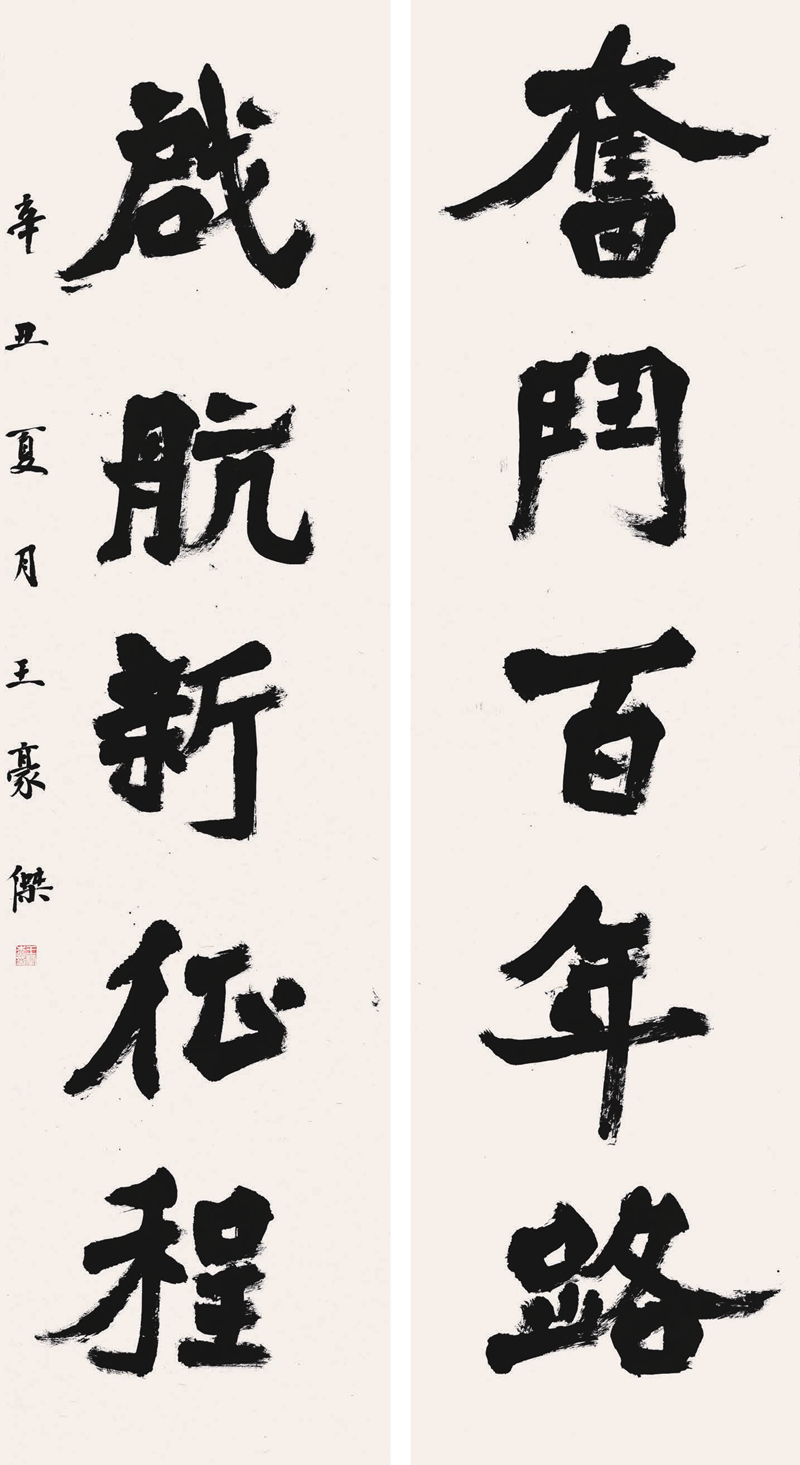 奮鬥百年路
啟航新征程
辛丑夏月王豪傑